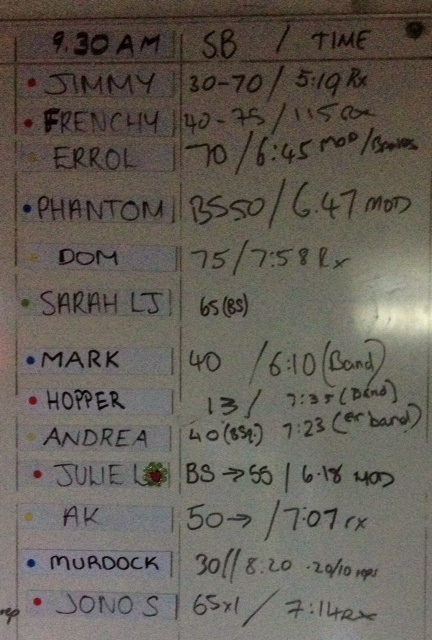 9.30 AM SB / TIME
JIMMY 30-70 / 5:19 Rx
FRENCHY 40-75 / 115 Rx
ERROL 70 / 6:45 MOD/BANDS
PHANTOM BS50 / 6.47 MOD
DOM 75 / 7:58 Rx
SARAH LJ 65 (BS)
MARK 40 / 6:10 (Band)
HOPPER 13 / 7:35 (Band)
ANDREA 40 (BSq.) 7:23 (er band)
JULIE L BS → 55 | 6.18 MOD
AK 50 → / 7:07 rx
MURDOCK 30 // 8.20 .20/10 reps
JONO S 65x1 / 7:14 Rx
rep